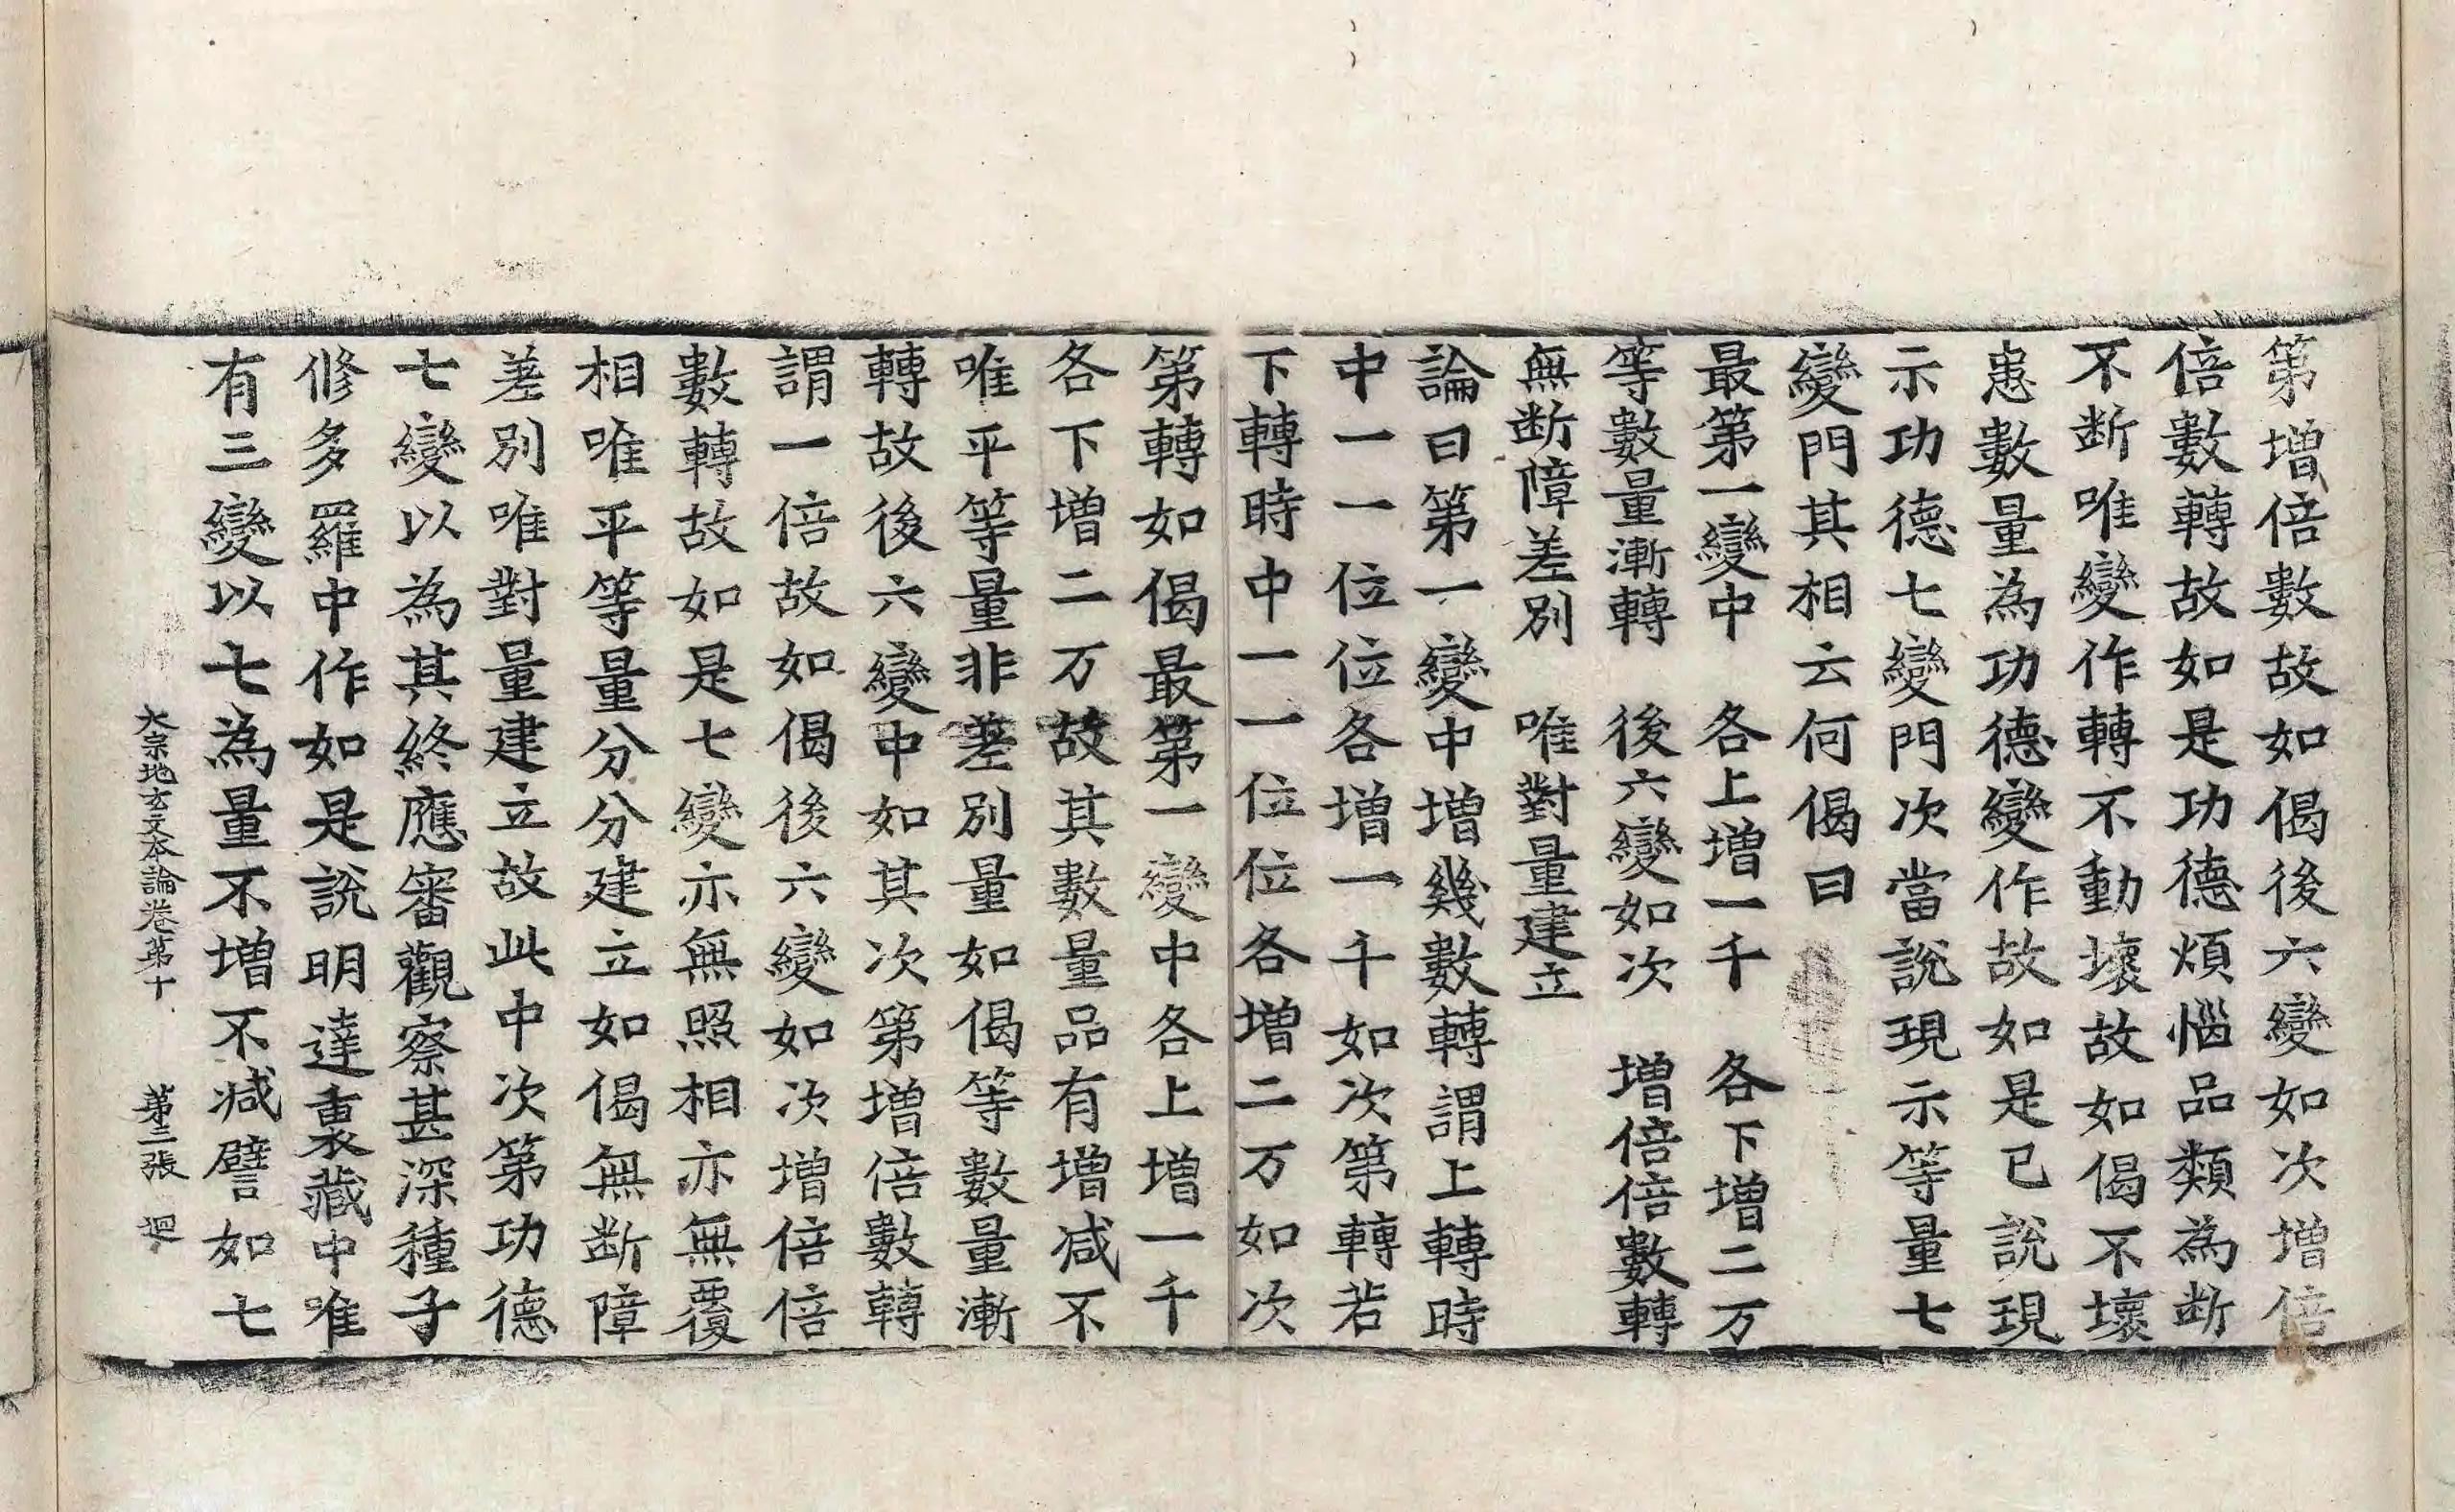 第增倍數故如偈後六變如次增倍
倍數轉故如是功德煩惱品類為断
不断唯變作轉不動壞故如偈不壞
恚數量為功德變作故如是已說現
示功德七變門次當說現示等量七
變門其相云何偈曰
最第一變中　各上增一千　各下增二万
等數量漸轉　後六變如次　增倍倍數轉
無断障差別　唯對量建立
論曰第一變中增幾數轉謂上轉時
中一一位位各增一千如次第轉若
下轉時中一一位位各增二万如次
第轉如偈最第一變中各上增一千
各下增二万故其數量品有增减不
唯平等量非差別量如偈等數量漸
轉故後六變中如其次第增倍數轉
謂一倍故如偈後六變如次增倍倍
數轉故如是七變亦無照相亦無覆
相唯平等量分分建立如偈無断障
差別唯對量建立故此中次第功德
七變以為其終應審觀察甚深種子
修多羅中作如是說明達裏藏中唯
有三變以七為量不增不减譬如七
大宗地玄文本論卷第十　第二張　迴